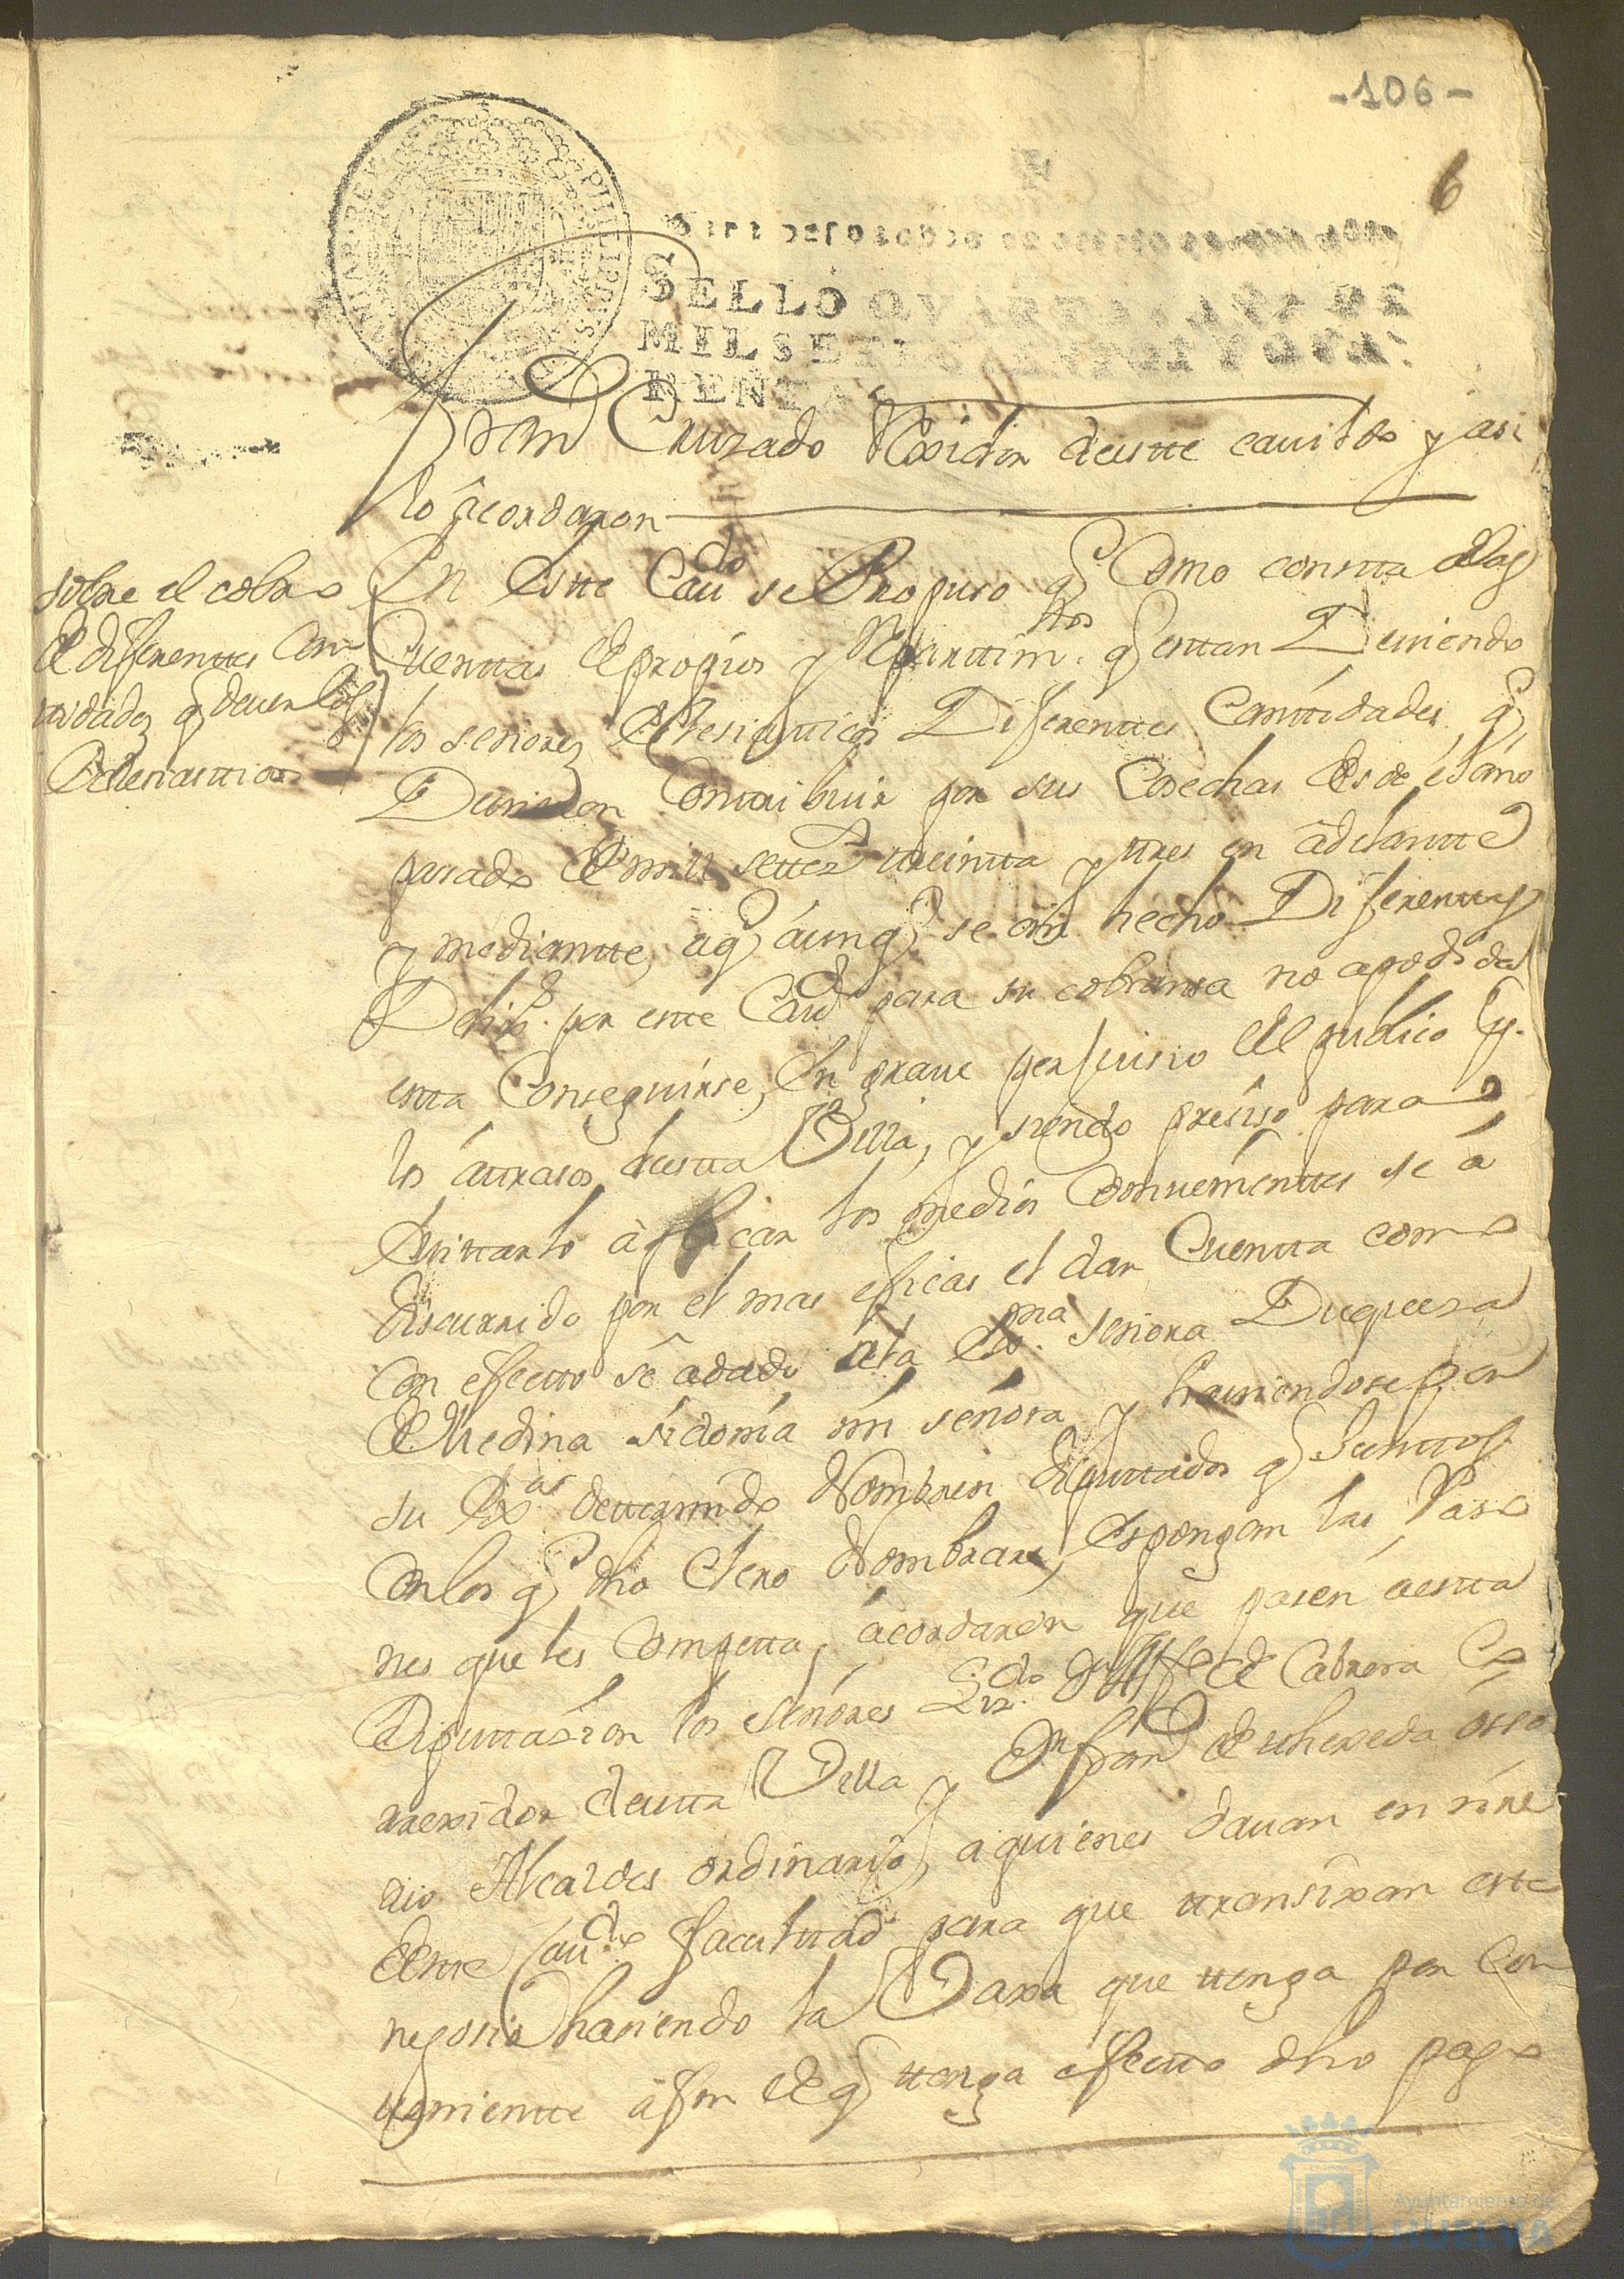 -106-
6
PHILIPPUS
SELLO QVARTO AÑO DE
MILSETECIENTOS Y QVA
RENTA
Juan Cruzado Rexidor deestte cauildo y asi
lo acordaron
sobre el cobro
de diferenttes can
ttidades q deuen los
Eclesiastticos
En Estte Caudo se Propuso q Como constta delas
Cuenttas de propios y Reparttimtos q esttan Deuiendo
los señores Eclesiasticos Diferenttes Canttidades q
Deuieron Conttribuir por sus Cosechas desde el año
pasado de mill settez ttreintta y ttres en adelantte
y mediantte, aq aunq se an hecho Diferenttes
por este Caudo para su cobransa no apodido
estta Conseguirse, En graue perjuisio del publico y
los attrasos deestta Villa, y siendo presiso para
Euittarlo aplicar los medios Conuenienttes se a
discurrido por el mas eficas el dar Cuentta como
Con efectto se adado ala Exma señora Duquesa
de Medina sidonia mi señora y hauiendose por
su Exa detterminado Nombren diputtados q Junttos
Con los q dho Clero Nombrare, Espongan las Raso
nes que les Compettan, acordaron que pasen aestta
Diputtasion los señores Lizdo Dn de Cabrera Co
rrexidor deestta Villa y Dn fran de osso
rio Alcaldes ordinario, a quienes dauan en nre
deestte Caudo facultad para que ttransixan estte
negosio hasiendo la Vaxa que ttenga por Con
ueniente afin de q ttenga efectto dho pago
Ayuntamiento de
HUELVA